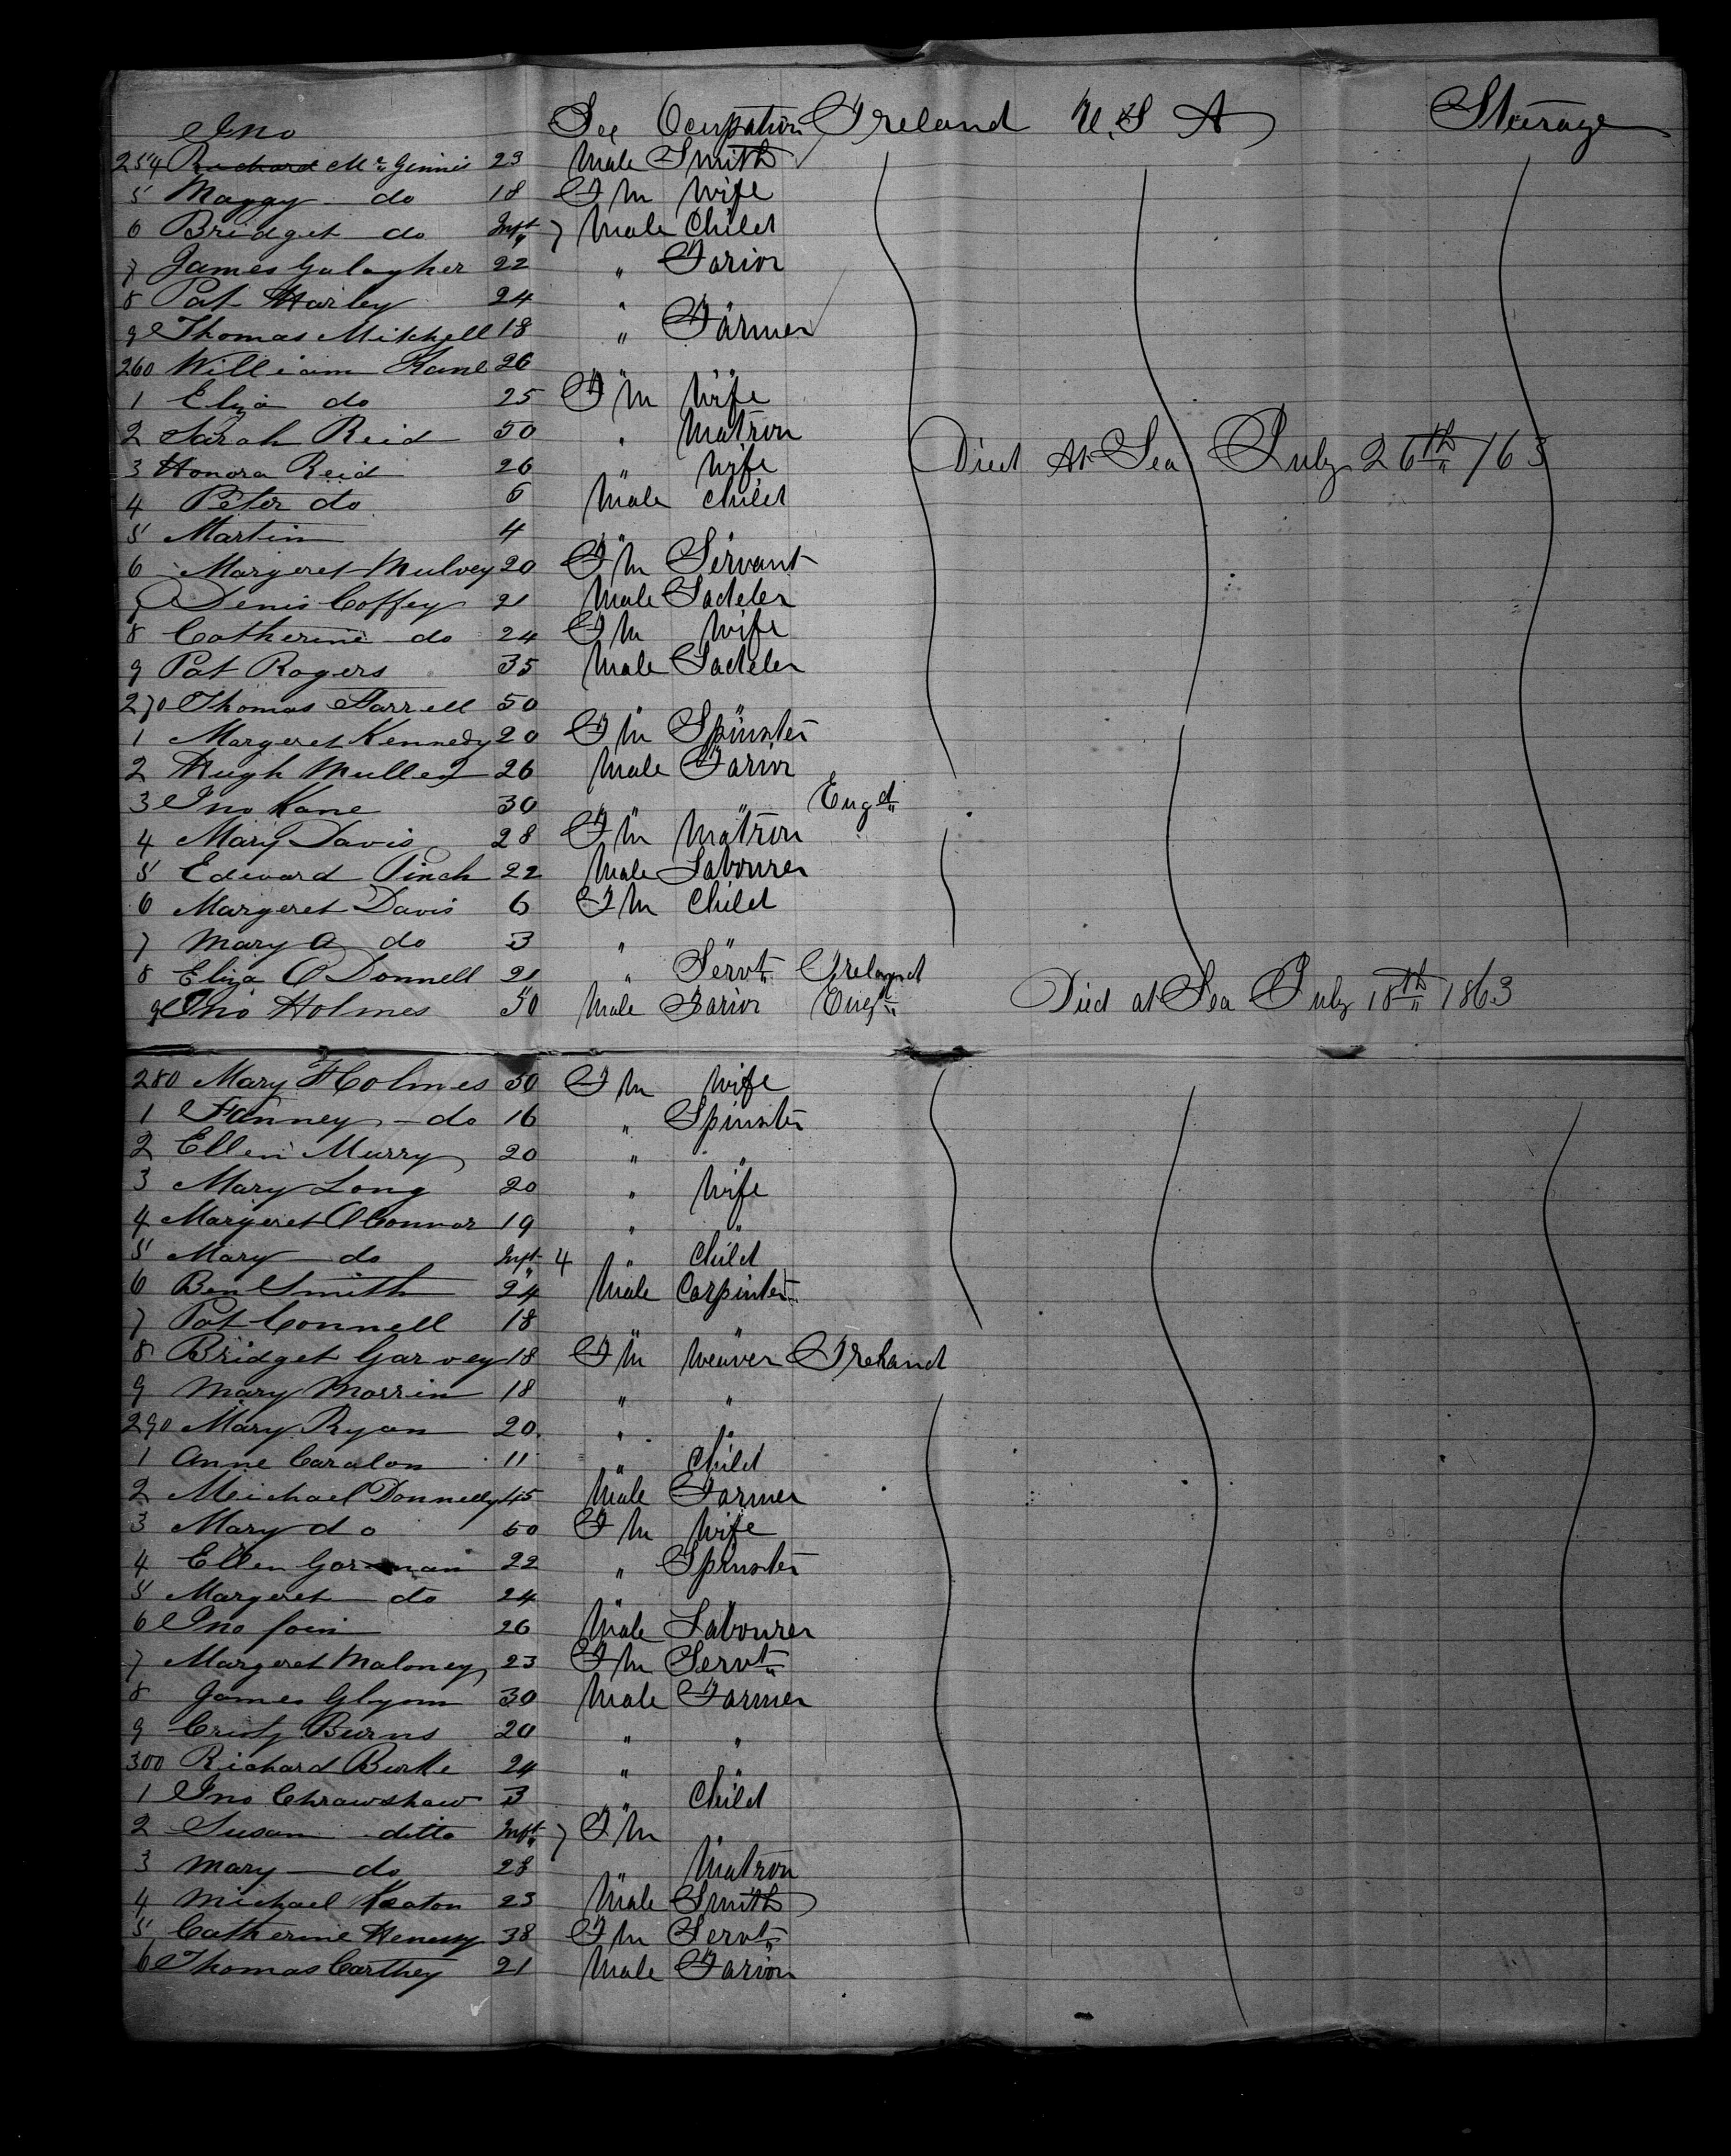 Jno Sex Ocupation Ireland U.S A Steerage
254 Richard McGinnis 23 Male Smith
5 Maggy do 18 Fm Wife
6 Bridget do Inft 7 Male Child
7 James Galagher 22 " Farior
8 Pat Harley 24 "
9 Thomas Mitchell 18 " Farmer
260 William Kane 26 " "
1 Eliza do 25 Fm Wife
2 Sarah Reid 50 " Matron
3 Honora Reid 26 " Wife Died At Sea July 26th /63
4 Peter do 6 Male Child
5 Martin 4 "
6 Margeret Mulvey 20 Fm Servant
7 Denis Coffey 21 Male Sadeler
8 Catherine do 24 Fm Wife
9 Pat Rogers 35 Male Sadeler
270 Thomas Farrell 50 " "
1 Margeret Kennedy 20 Fm Spinster
2 Hugh Mulley 26 Male Farior
3 Jno Kane 30 " " Engd
4 Mary Davis 28 Fm Matron
5 Edward Pinch 22 Male Labourer
6 Margeret Davis 6 Fm Child
7 Mary A do 3 " "
8 Eliza O Donnell 21 " Servt Ireland
9 Jno Holmes 50 Male Farior Engd Died at Sea July 18th 1863
280 Mary Holmes 50 Fm Wife
1 Fanney do 16 " Spinster
2 Ellen Murry 20 " "
3 Mary Long 20 " Wife
4 Margeret OConnor 19 " "
5 Mary do Inft 4 " Child
6 Ben Smith 24 Male Carpinter
7 Pat Connell 18 " "
8 Bridget Garvey 18 Fm Weaver Ireland
9 Mary Morrin 18 " "
290 Mary Ryan 20 " "
1 Anne Caralon 11 " Child
2 Meichael Donnelly 45 Male Farmer
3 Mary do 50 Fm Wife
4 Ellen Gorman 22 " Spinster
5 Margeret do 24 " "
6 Jno 26 Male Labourer
7 Margeret Maloney 23 Fm Servt
8 James Glynn 30 Male Farmer
9 Cristy Burns 20 " "
300 Richard Burke 24 " "
1 Jno Chrawshaw 3 " Child
2 Susan ditto Inft 7 Fm "
3 Mary do 28 " Matron
4 Michael Keaton 23 Male Smith
5 Catherine Henessy 38 Fm Servt
6 Thomas Carthey 21 Male Farior